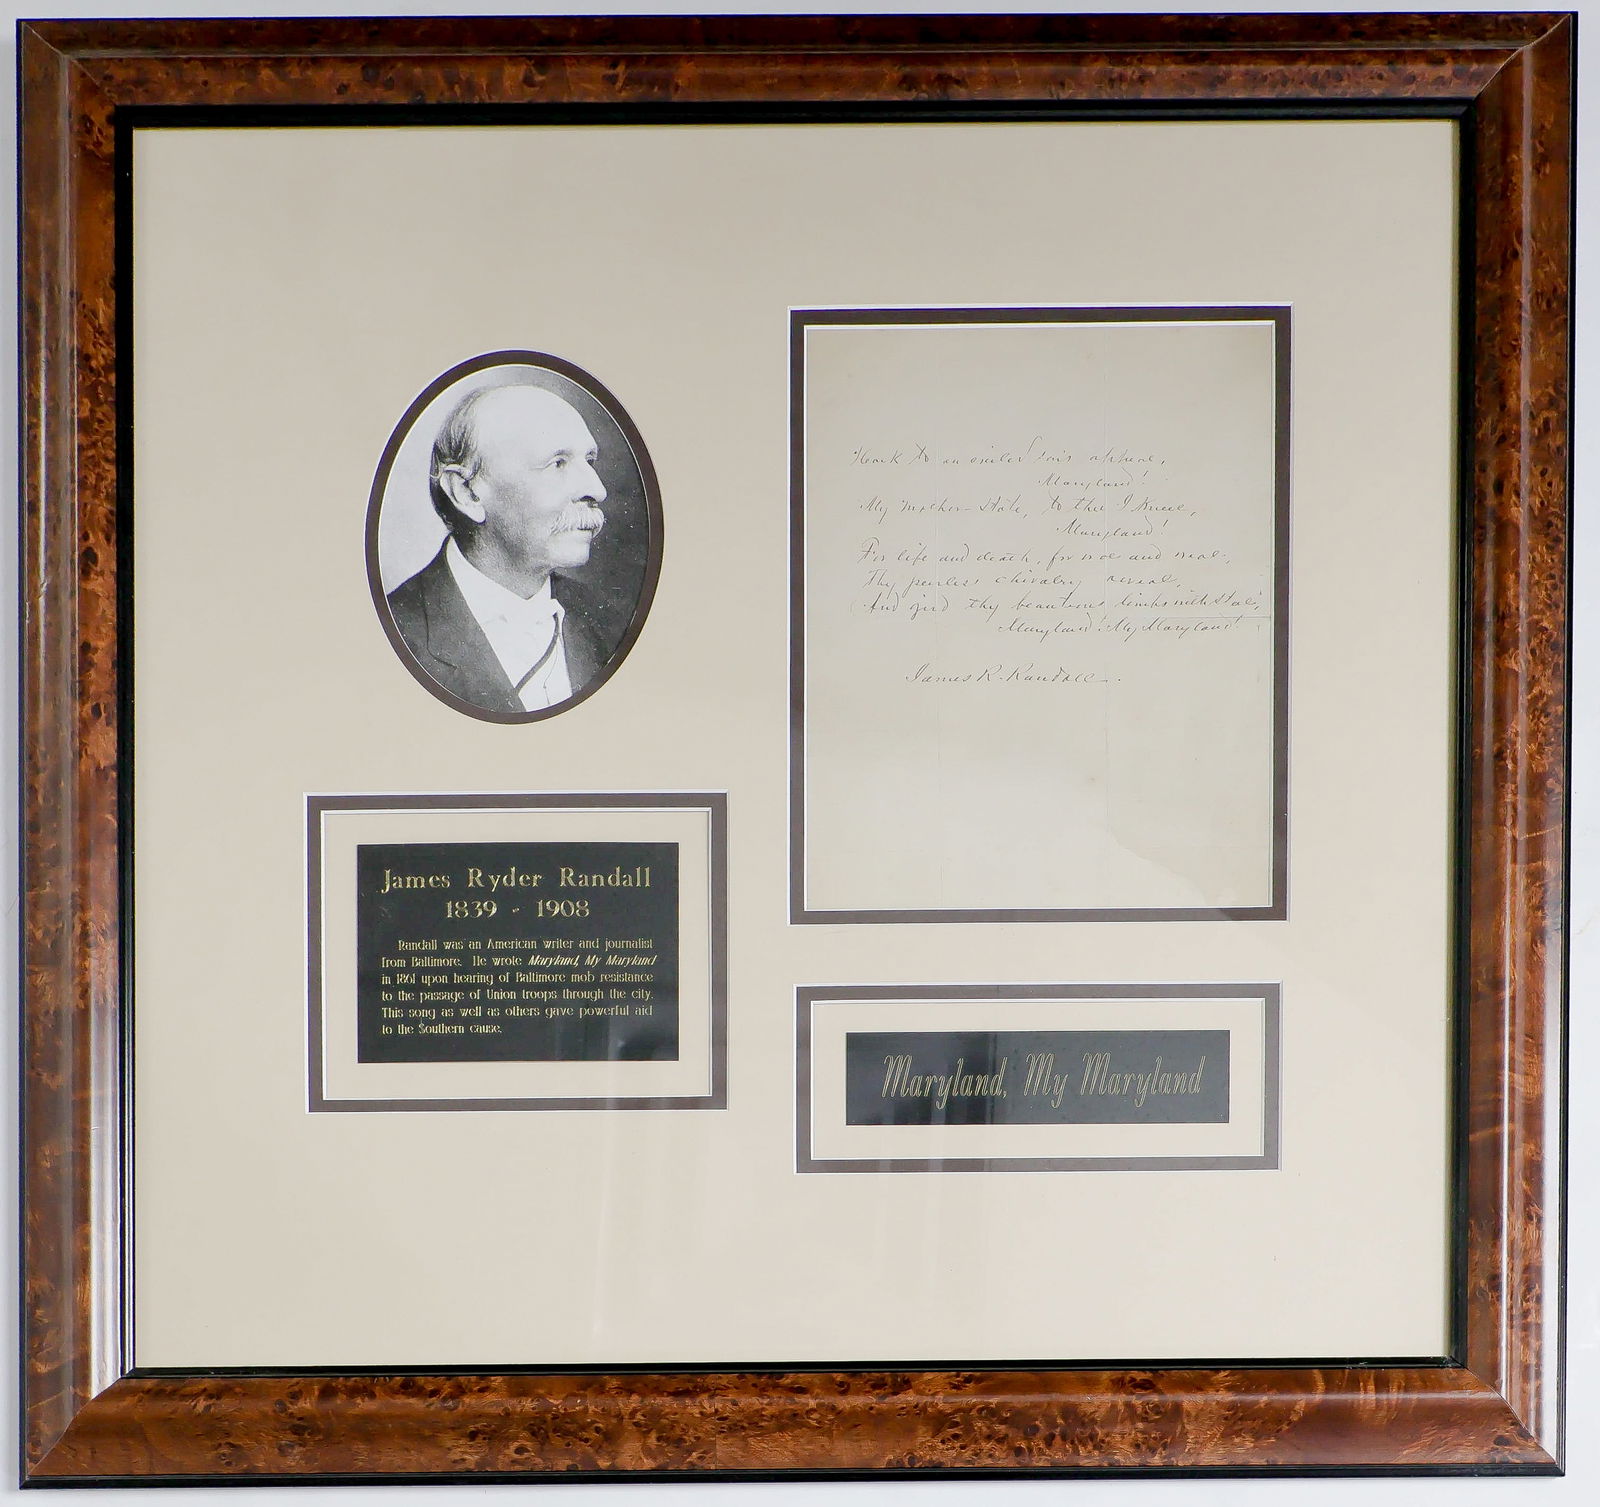 Hark to an exiled son's appeal,
Maryland!
My Mother-State, to thee I kneel,
Maryland!
For life and death, for woe and weal,
Thy peerless chivalry reveal,
And gird thy beauteous limbs with steel,
Maryland! My Maryland!
James R. Randall.
James Ryder Randall
1839 - 1908
Randall was an American writer and journalist
from Baltimore. He wrote Maryland, My Maryland
in 1861 upon hearing of Baltimore mob resistance
to the passage of Union troops through the city.
This song as well as others gave powerful aid
to the Southern cause.
Maryland, My Maryland